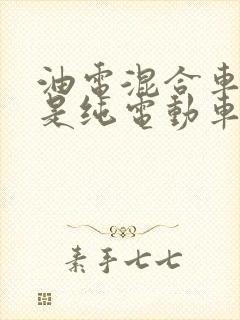 油電混合車
是純電動車
素手七七